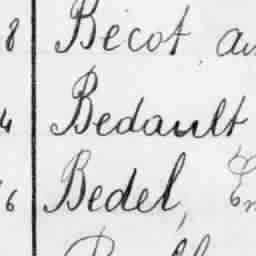 8 Bécot
4 Bedault
6 Bedel,